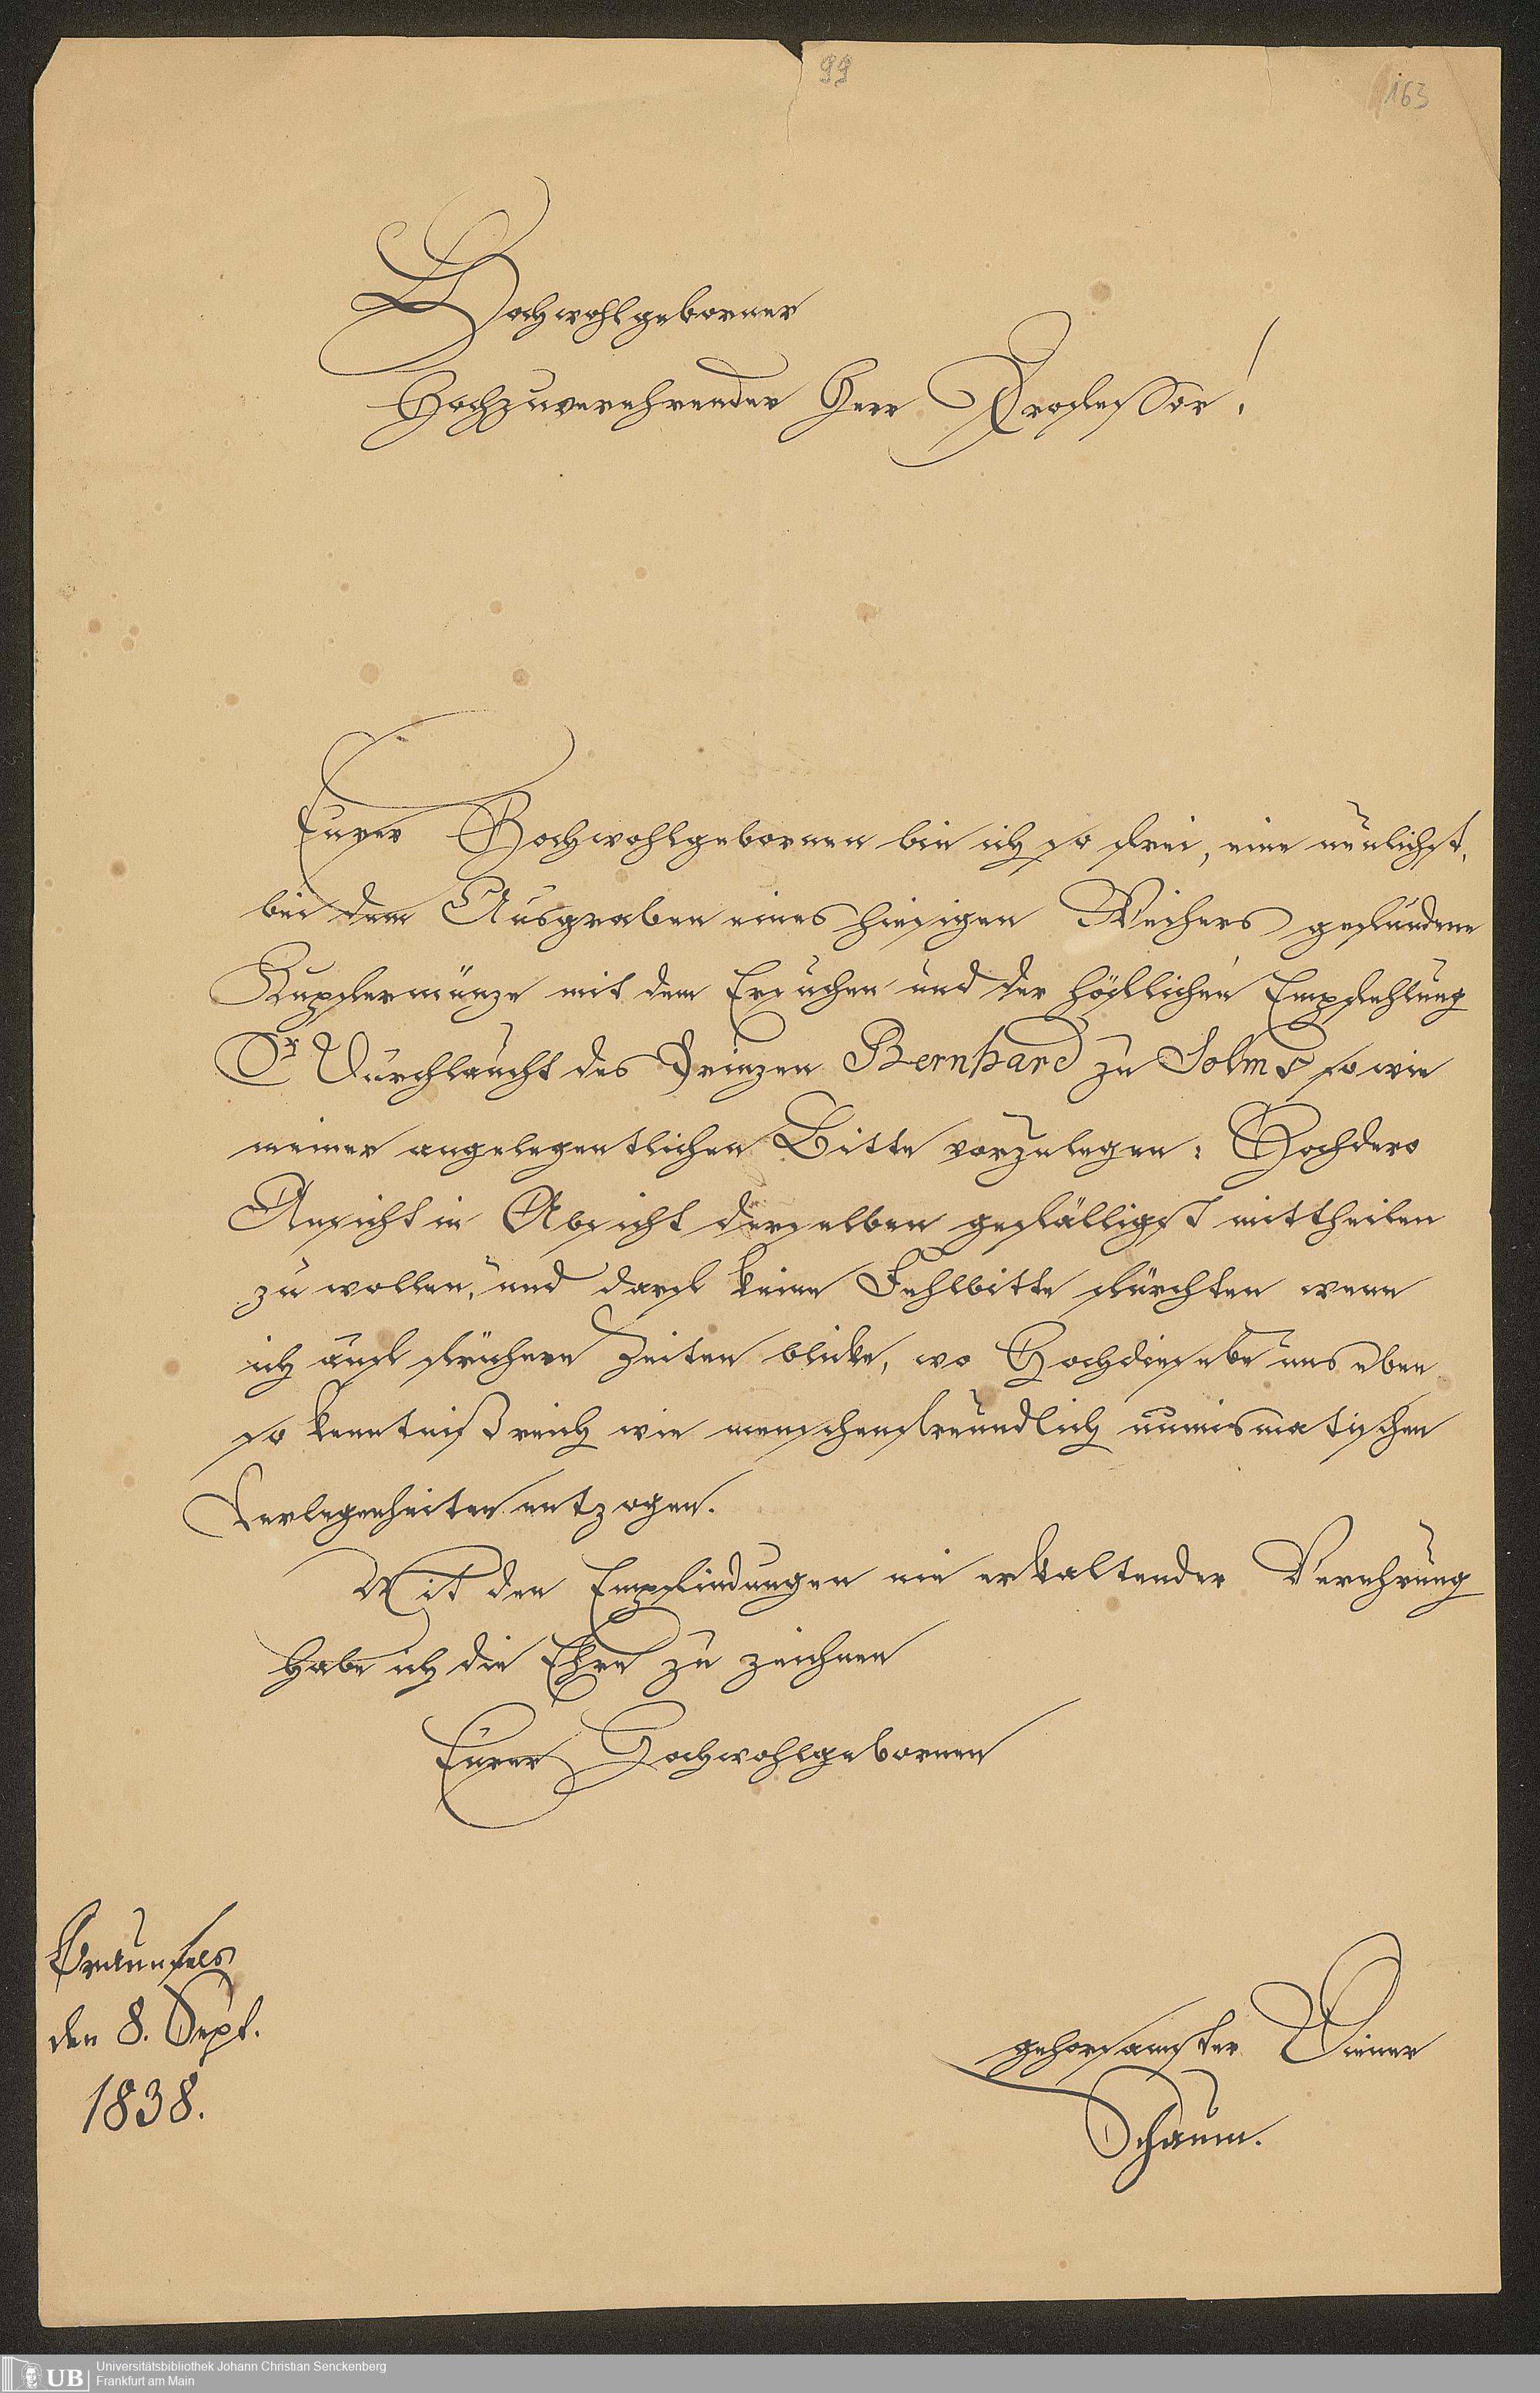 99
163
Hochwohlgeborner
Hochzuverehrender Herr Professor!
Eurer Hochwohlgebornen bin ich so frei, eine neulichst,
bei dem Ausgraben eines hiesigen Weihers gefundene
Kupfermünze mit dem Ersuchen und der höflichen Empfehlung
Sr Durchlaucht des Prinzen Bernhard zu Solms so wie
meiner angelegentlichen Bitte vorzulegen: Hochdero
Ansicht in Absicht derselben gefälligst mittheilen
zu wollen, und darf keine Fehlbitte fürchten wenn
ich auf frühere Zeiten blicke, wo Hochdieselbe uns eben
so kenntnißreich wie menschenfreundlich numismatischen
Verlegenheiten entzogen.
Mit den Empfindungen nie erkaltender Verehrung
habe ich die Ehre zu zeichnen
Eurer Hochwohlgebornen
Braunfels
den 8. Sept.
1838.
gehorsamster Diener
Schaum.
UB Universitätsbibliothek Johann Christian Senckenberg
Frankfurt am Main